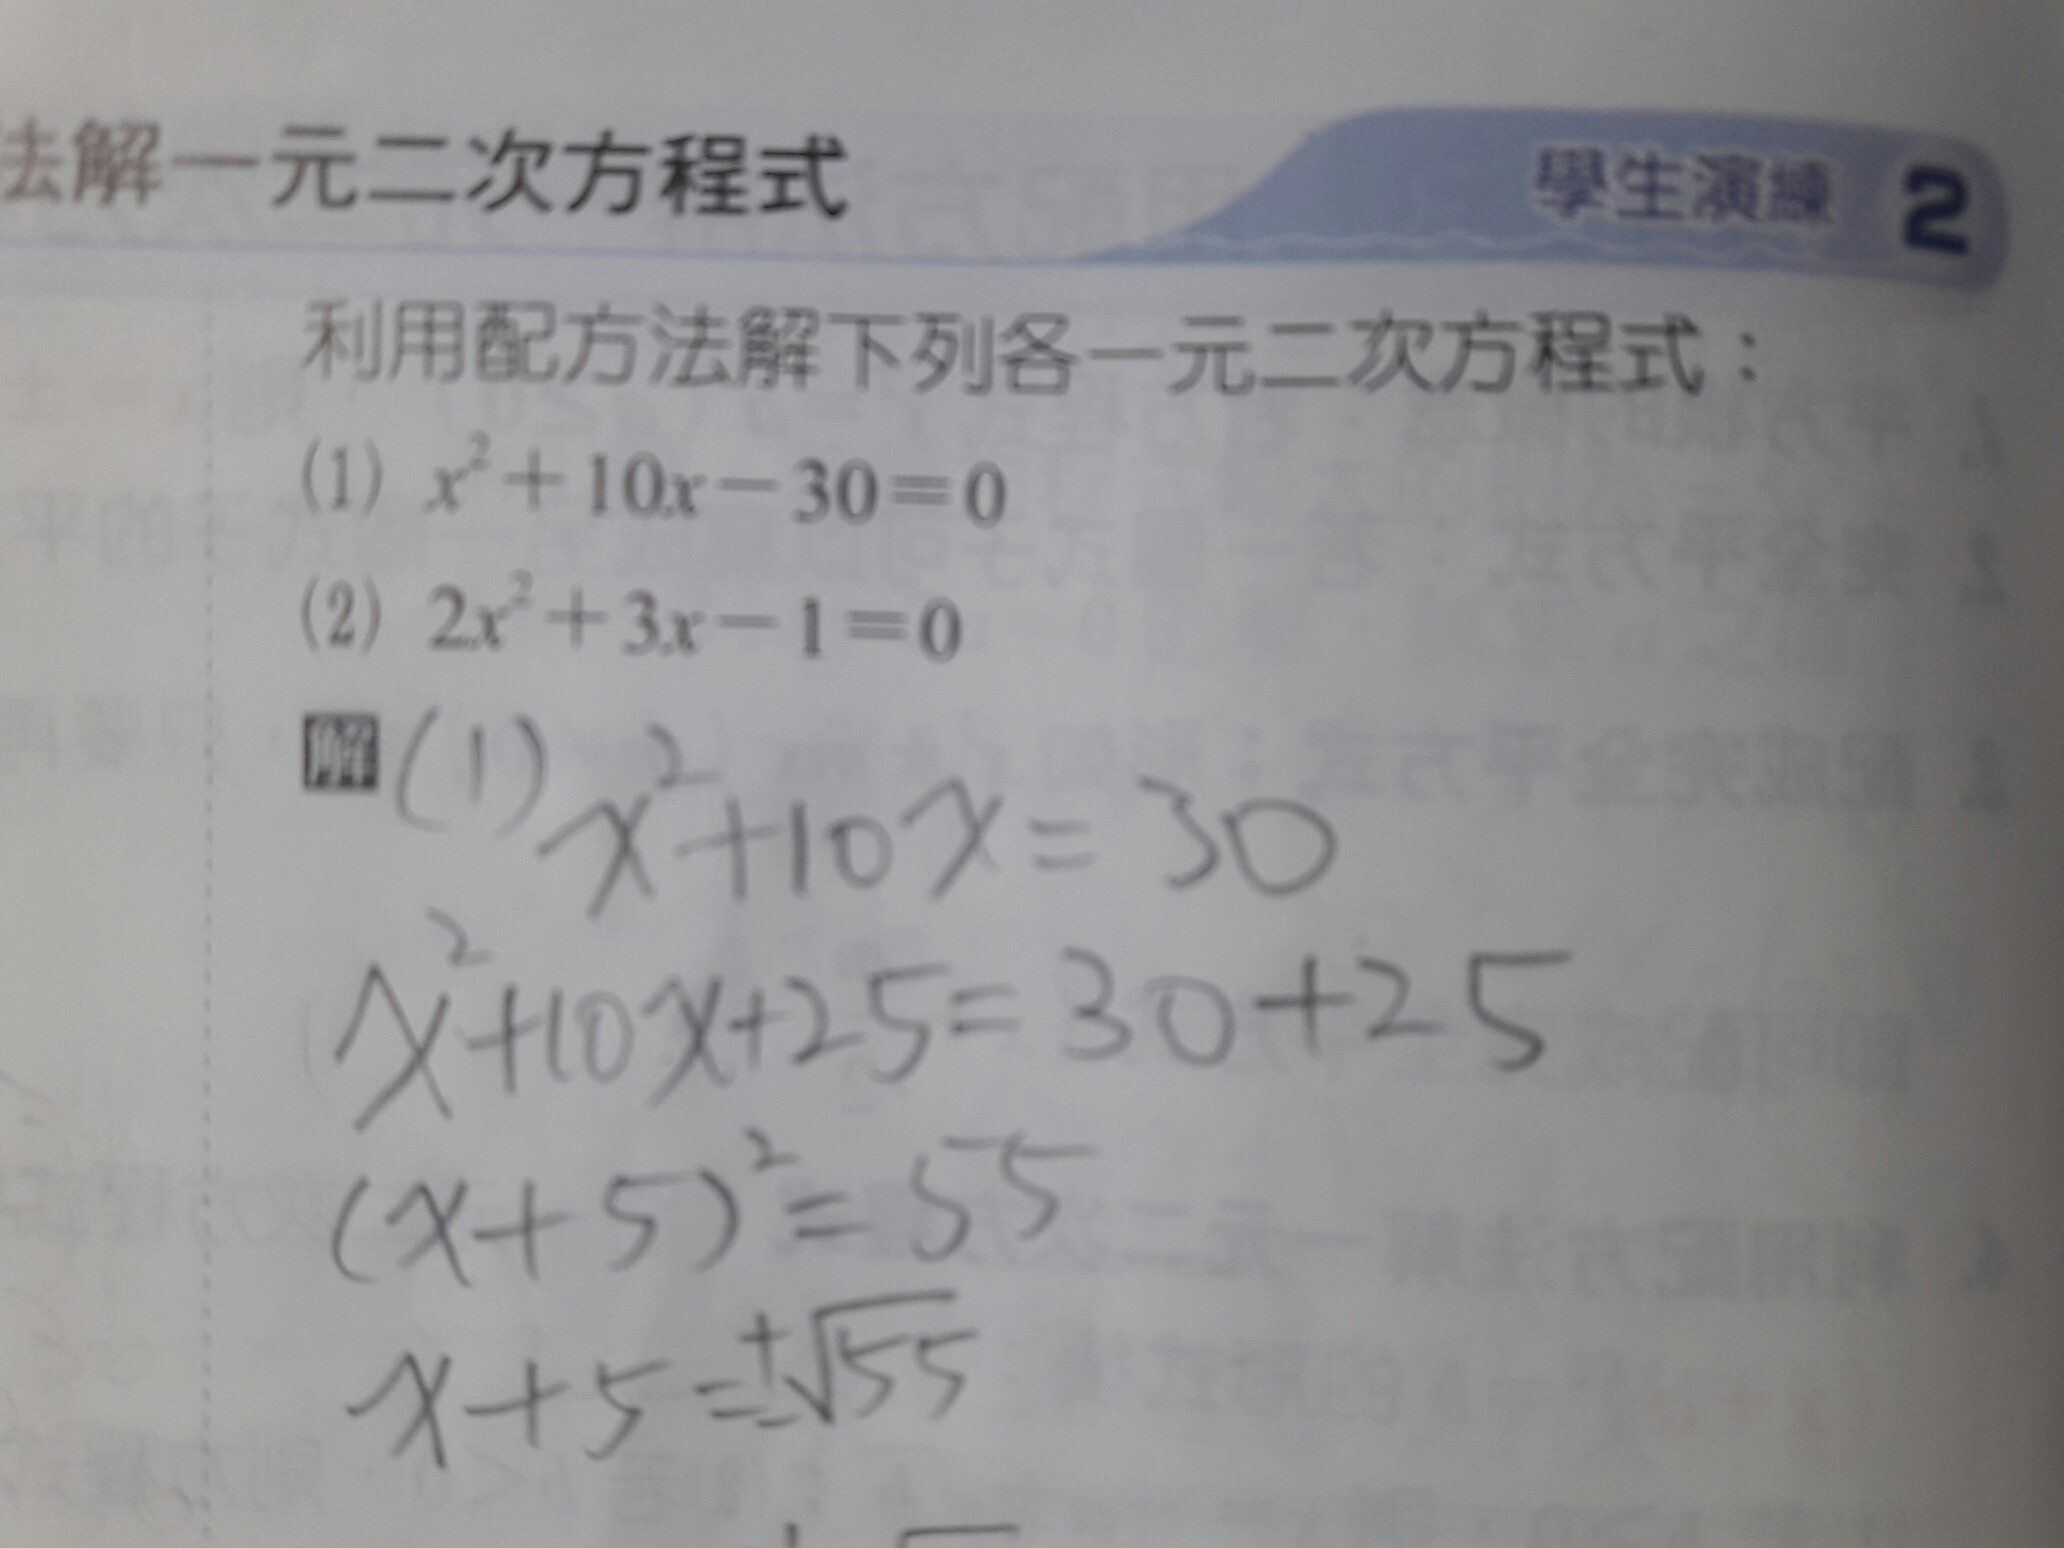 法解一元二次方程式
學生演練 2
利用配方法解下列各一元二次方程式：
(1) x²+10x-30=0
(2) 2x²+3x-1=0
解 (1) x²+10x=30
x²+10x+25=30+25
(x+5)²=55
x+5=±√55